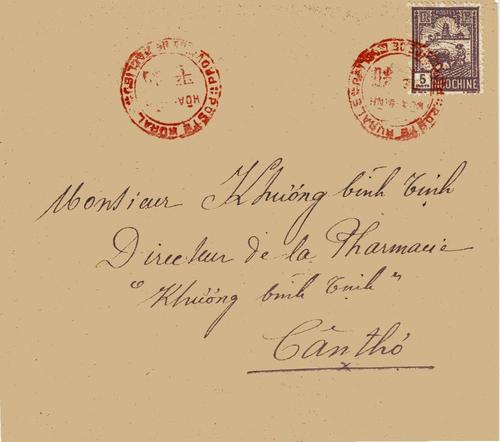 POSTE RURALE
HÒA BÌNH
POSTE RURALE
5
INDOCHINE
Monsieur Khương bình Tịnh
Directeur de la Pharmacie
"Khương bình Tịnh"
Cần thơ